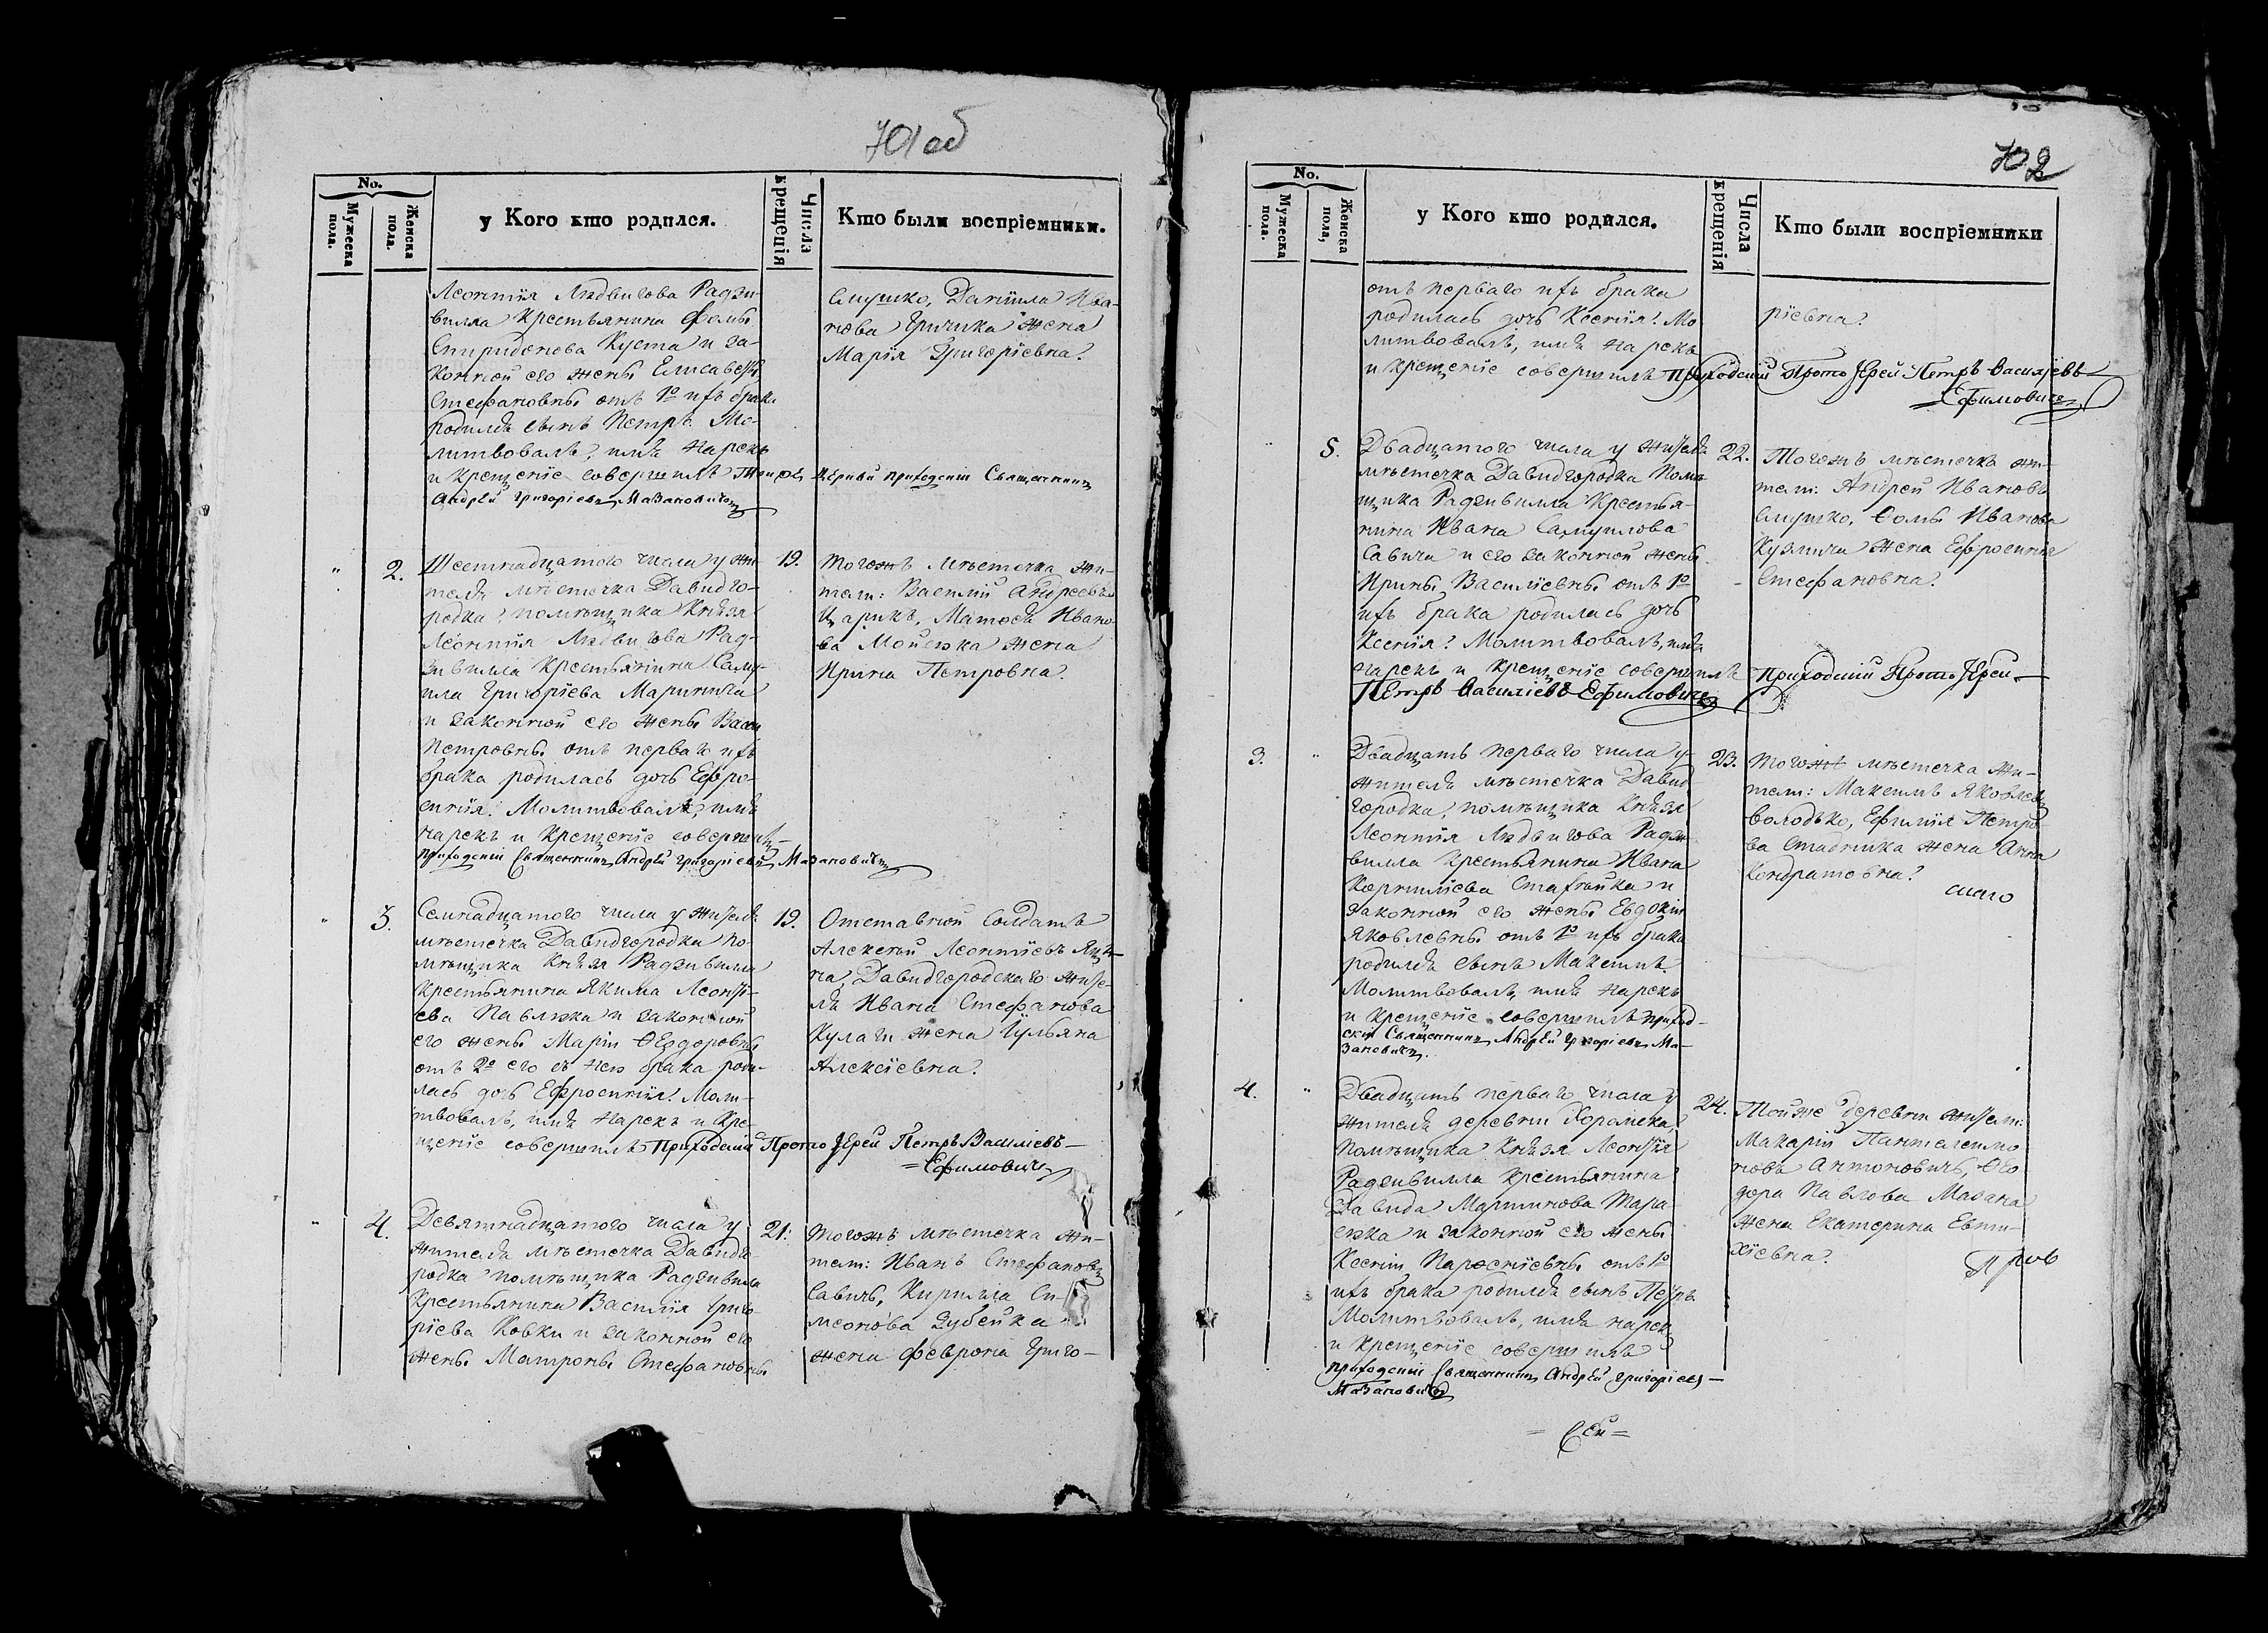 701 об
No.
Мужеска пола.
Женска пола.
у Кого кто родился.
Числа крещенія
Кто были воспріемники.
Леонтія Людвигова Радзи-
вилла крестьянина Фомы
Спиридонова Куста и за-
конной его жены Елисаветы
Стефановны отъ 1º ихъ брака
родился сынъ Петръ Мо-
литвовалъ, имя нарекъ
и крещеніе совершилъ тоя же церкви приходскій Священникъ
Андрей Григоріевъ Мазановичъ
Слушко, Даніила Ива-
нова Гричика жена
Марія Григоріевна.
" 2. Шестнадцатого числа у жи-
теля мѣстечка Давидго-
родка, помѣщика Князя
Леонтія Людвигова Рад-
зивилла крестьянина Саму-
ила Григоріева Маринича
и законной его жены Васы
Петровны отъ перваго ихъ
брака родилась дочь Ефро-
синія. Молитвовалъ, имя
нарекъ и крещеніе совершилъ
приходскій Священникъ Андрей Григоріевъ Мазановичъ
19. Тогожъ мѣстечка жи-
тели: Василій Андреевъ
Царикъ, Матвея Ивано-
ва Мойсюка жена
Ирина Петровна.
" 3. Семнадцатого числа у жителя
мѣстечка Давидгородка по-
мѣщика Князя Радзивилла
крестьянина Якима Леонті-
ева Павлюка и законной
его жены Маріи Ѳеодоровны
отъ 2º его съ нею брака роди-
лась дочь Ефросинія. Моли-
твовалъ, имя нарекъ и кре-
щеніе совершилъ Приходскій Прото Іерей Петръ Василіевъ
Ефимовичъ
19. Отставной Солдатъ
Алексѣй Леонтіевъ
на, Давидгородскаго жите-
ля Ивана Стефанова
Кулаги жена Іульяна
Алексіевна.
" 4. Девятнадцатого числа у
жителя мѣстечка Давидго-
родка помѣщика Радзивилла
крестьянина Василія Григо-
ріева Ковки и законной его
жены Матроны Стефановны
21. Тогожъ мѣстечка жи-
тели: Иванъ Стефановъ
Савичъ, Кирилла Си-
меонова Зубейка
жена Феврона Григо-
702
No.
Мужеска пола.
Женска пола,
у Кого кто родился.
Числа крещенія
Кто были воспріемники
отъ перваго ихъ брака
родилась дочь Ксенія. Мо-
литвовалъ, имя нарекъ
и крещеніе совершилъ Приходскій Прото Іерей Петръ Василіевъ
Ефимовичъ
ріевна.
" 5. Двадцатого числа у жителя
мѣстечка Давидгородка помѣ-
щика Радзивилла крестья-
нина Ивана Самуилова
Савича и его законной жены
Ирины Василіевны отъ 1º
ихъ брака родилась дочь
Ксенія. Молитвовалъ, имя
нарекъ и крещеніе совершилъ Приходскій Прото Іерей
Петръ Василіевъ Ефимовичъ
22. Тогожъ мѣстечка жи-
тели: Андрей Ивановъ
Слушко, Фомы Иванова
Кузмича жена Ефросинія
Стефановна.
3. " Двадцать перваго числа у
жителя мѣстечка Давид-
городка, помѣщика Князя
Леонтія Людвигова Радзи-
вилла крестьянина Ивана
Корниліева и
законной его жены Евдокіи
Яковлевны отъ 1º ихъ брака
родился сынъ Максимъ.
Молитвовалъ, имя нарекъ
и крещеніе совершилъ приход-
скій Священникъ Андрей Григоріевъ Ма-
зановичъ.
23. Тогожъ мѣстечка жи-
тели: Максимъ Яковлевъ
Володько, Ефимія Петро-
ва Стадника жена Анна
Кондратовна.
4. " Двадцать перваго числа у
жителя деревни Хоромска,
помѣщика Князя Леонтія
Радзивилла крестьянина
Давида Мартинова Тара-
сюка и законной его жены
Ксеніи отъ 1º
ихъ брака родился сынъ Петръ.
Молитвовалъ, имя нарекъ
и крещеніе совершилъ
приходскій Священникъ Андрей Григоріевъ
Мазановичъ
24. Тойже деревни жители:
Макарій Пантелеимо-
новъ Антоновичъ, Ѳео-
дора Павлова
жена Екатерина Евти-
хіевна.